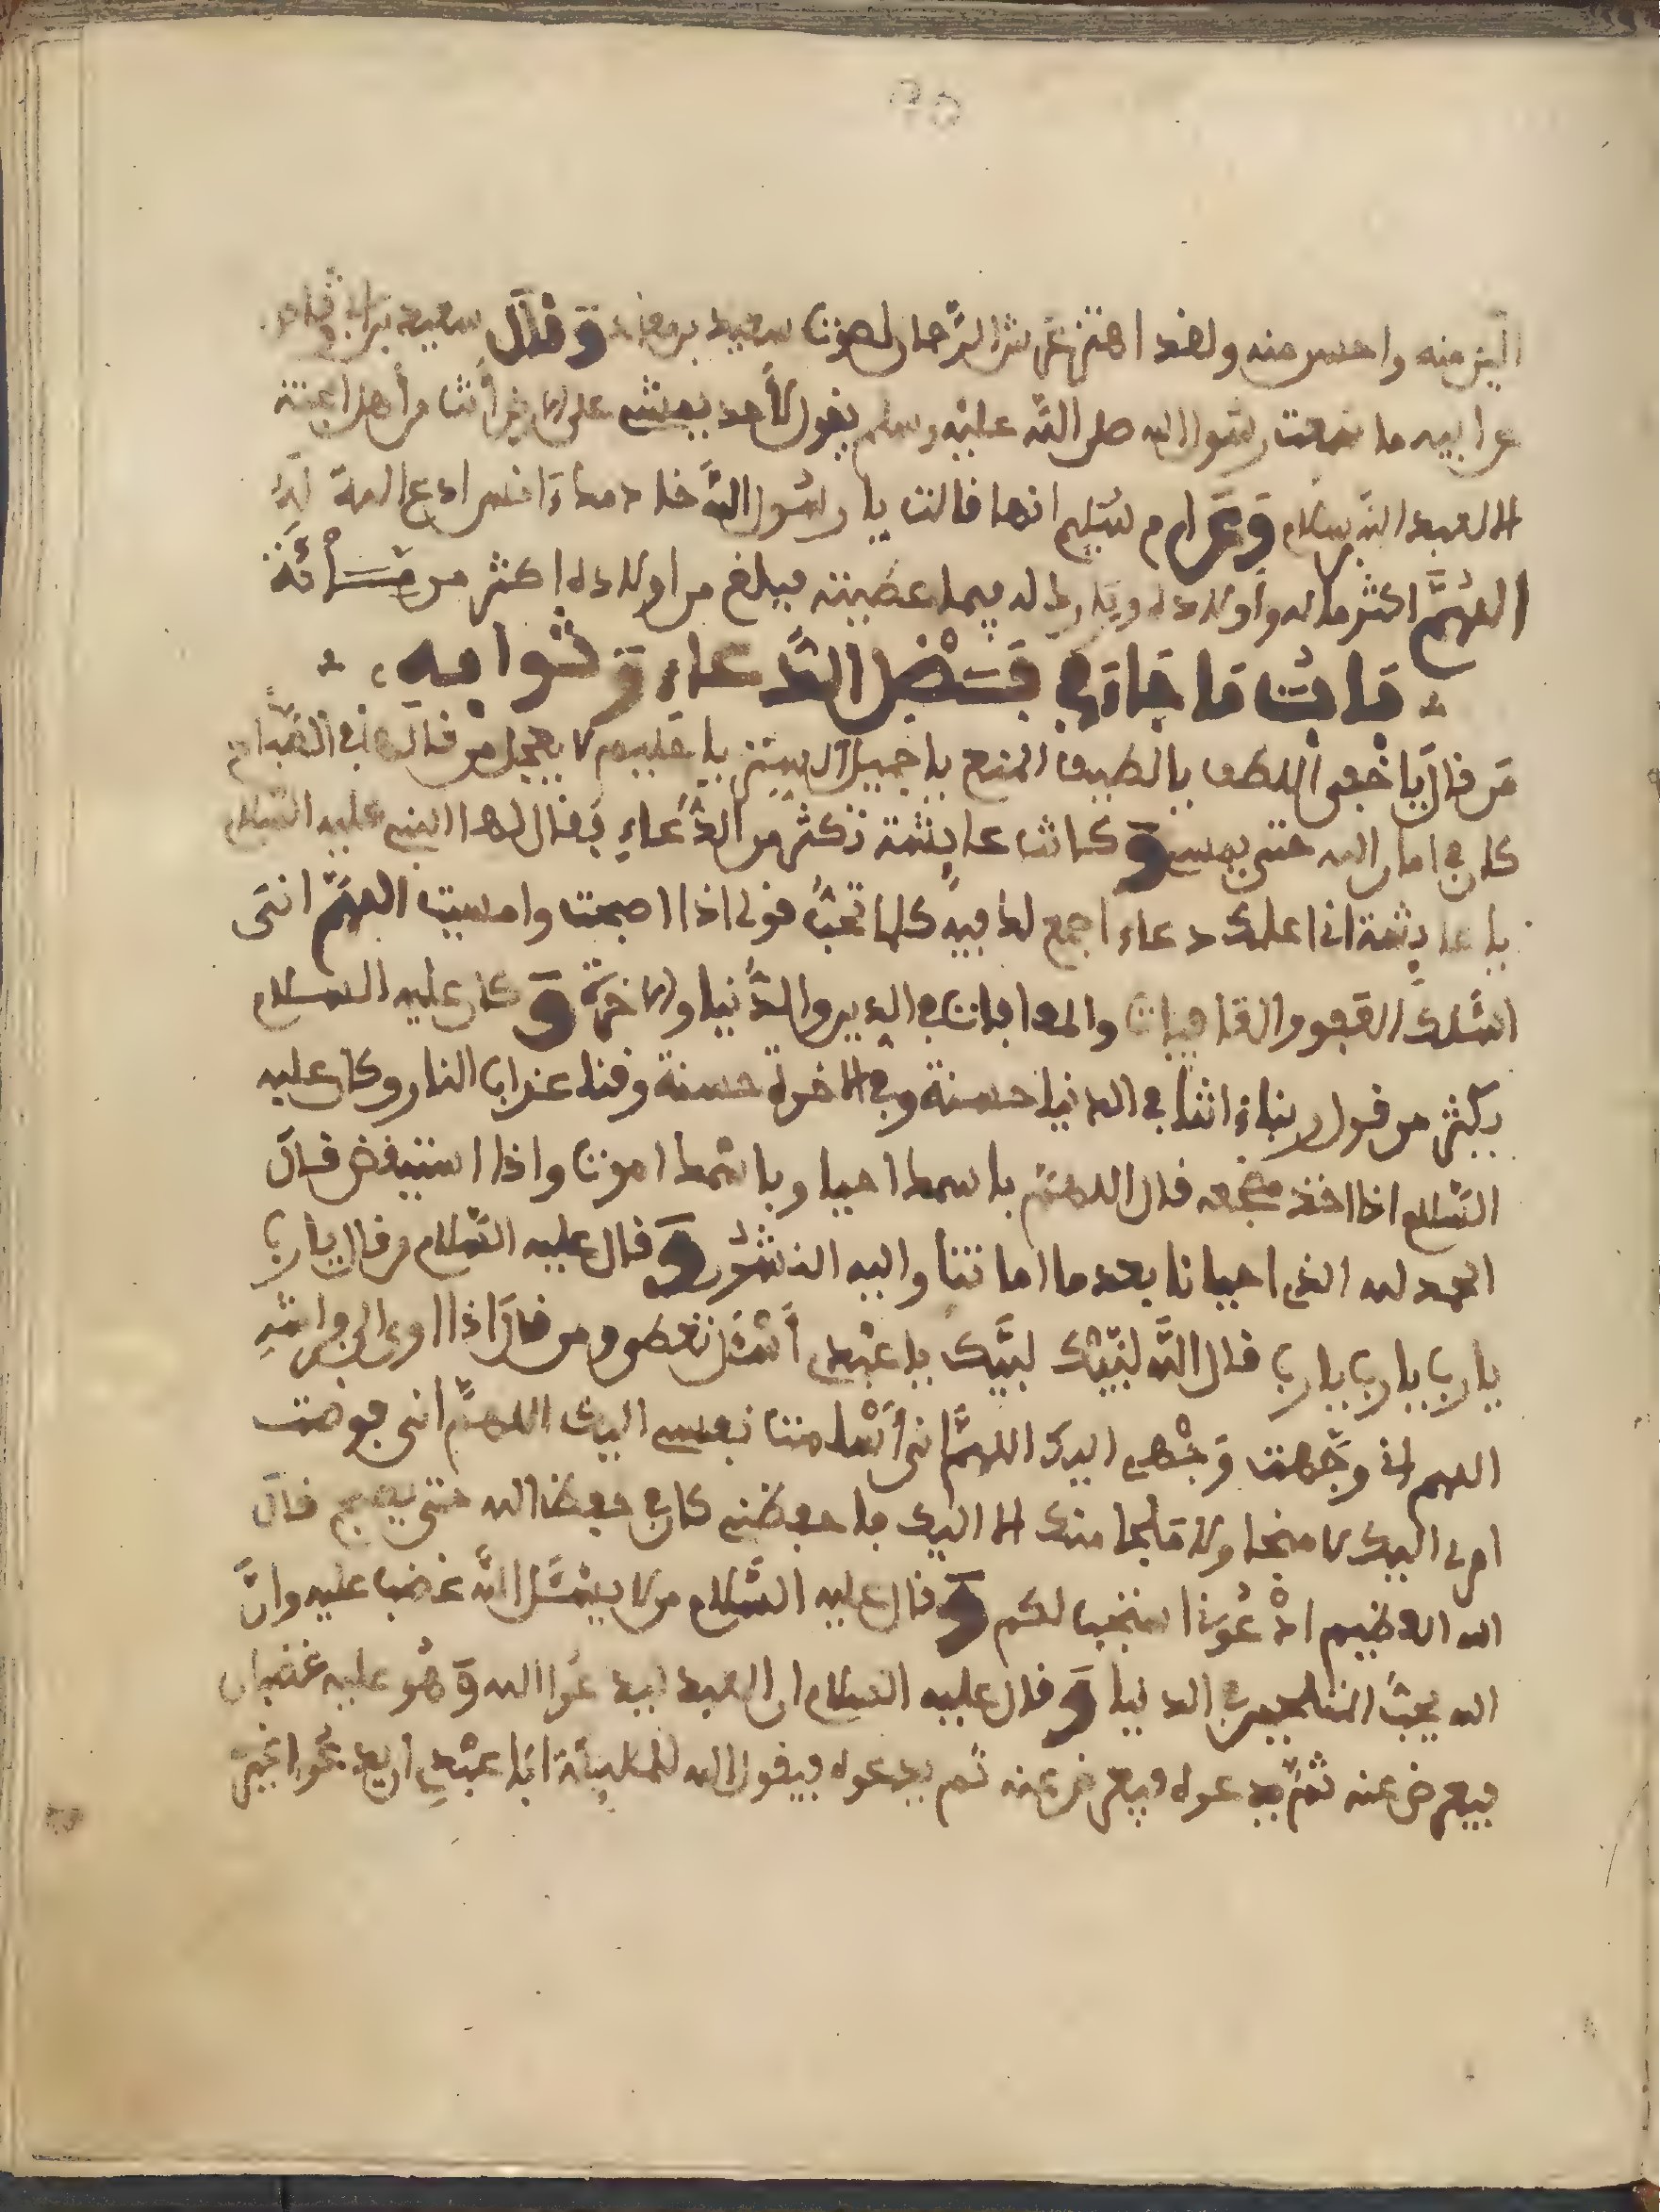 الين منه واحسن منه ولقد اهتز عرش الرحمان لموت سعيد بن معاذ وقال سعيد بن ابي وقاص
عن ابيه ما سمعت رسول الله صلى الله عليه وسلم يقول لأحد يمشي على الارض أنت من أهل الجنة
الا لعبد الله بن سلام وعن ام سليم انها قالت يا رسول الله خادمك انس ادع الله له
اللهم اكثر ماله وأولاده وبارك له فيما اعطيته فبلغ من اولاده اكثر من مائة
باب ما جاء في فضل الدعاء وثوابه
من قال يا خفي اللطف يا لطيف الصنع يا جميل الستر يا حليم لا يعجل من قالها في الصباح
كان في امان الله حتى يمسي وكانت عايشة تكثر من الدعاء فقال لها النبي عليه السلام
يا عايشة انا اعلمك دعاء اجمع لك فيه كلما تحب قولي اذا اصبحت وامسيت اللهم اني
اسئلك العفو والعافيات والمعافات في الدين والدنيا والاخرة وكان عليه السلام
يكثر من قول ربنا ءاتنا في الدنيا حسنة وفي الاخرة حسنة وقنا عذاب النار وكان عليه
السلام اذا اخذ مضجعه قال اللهم باسمك احيا وباسمك اموت واذا استيقض قال
الحمد لله الذي احيانا بعد ما اماتنا واليه النشور وقال عليه السلام من قال يا رب
يا رب يا رب يا رب قال الله لبيك لبيك يا عبدي أسئل تعطى ومن قال اذا اوى الى فراشه
اللهم اني وجهت وجهي اليك اللهم اني أسلمت نفسي اليك اللهم اني فوضت
امري اليك لا منجا ولا ملجا منك الا اليك فاحفظني كان في حفظ الله حتى يصبح قال
الله العظيم ادعوني استجب لكم وقال عليه السلام من لا يسئل الله غضب عليه وان
الله يحب الملحين في الدنيا وقال عليه السلام ان العبد ليدعوا الله وهو عليه غضبان
فيعرض عنه ثم يدعوه فيعرض عنه ثم يدعوه فيقول الله للمليكة ابا عبدي ان يدعوا غيري